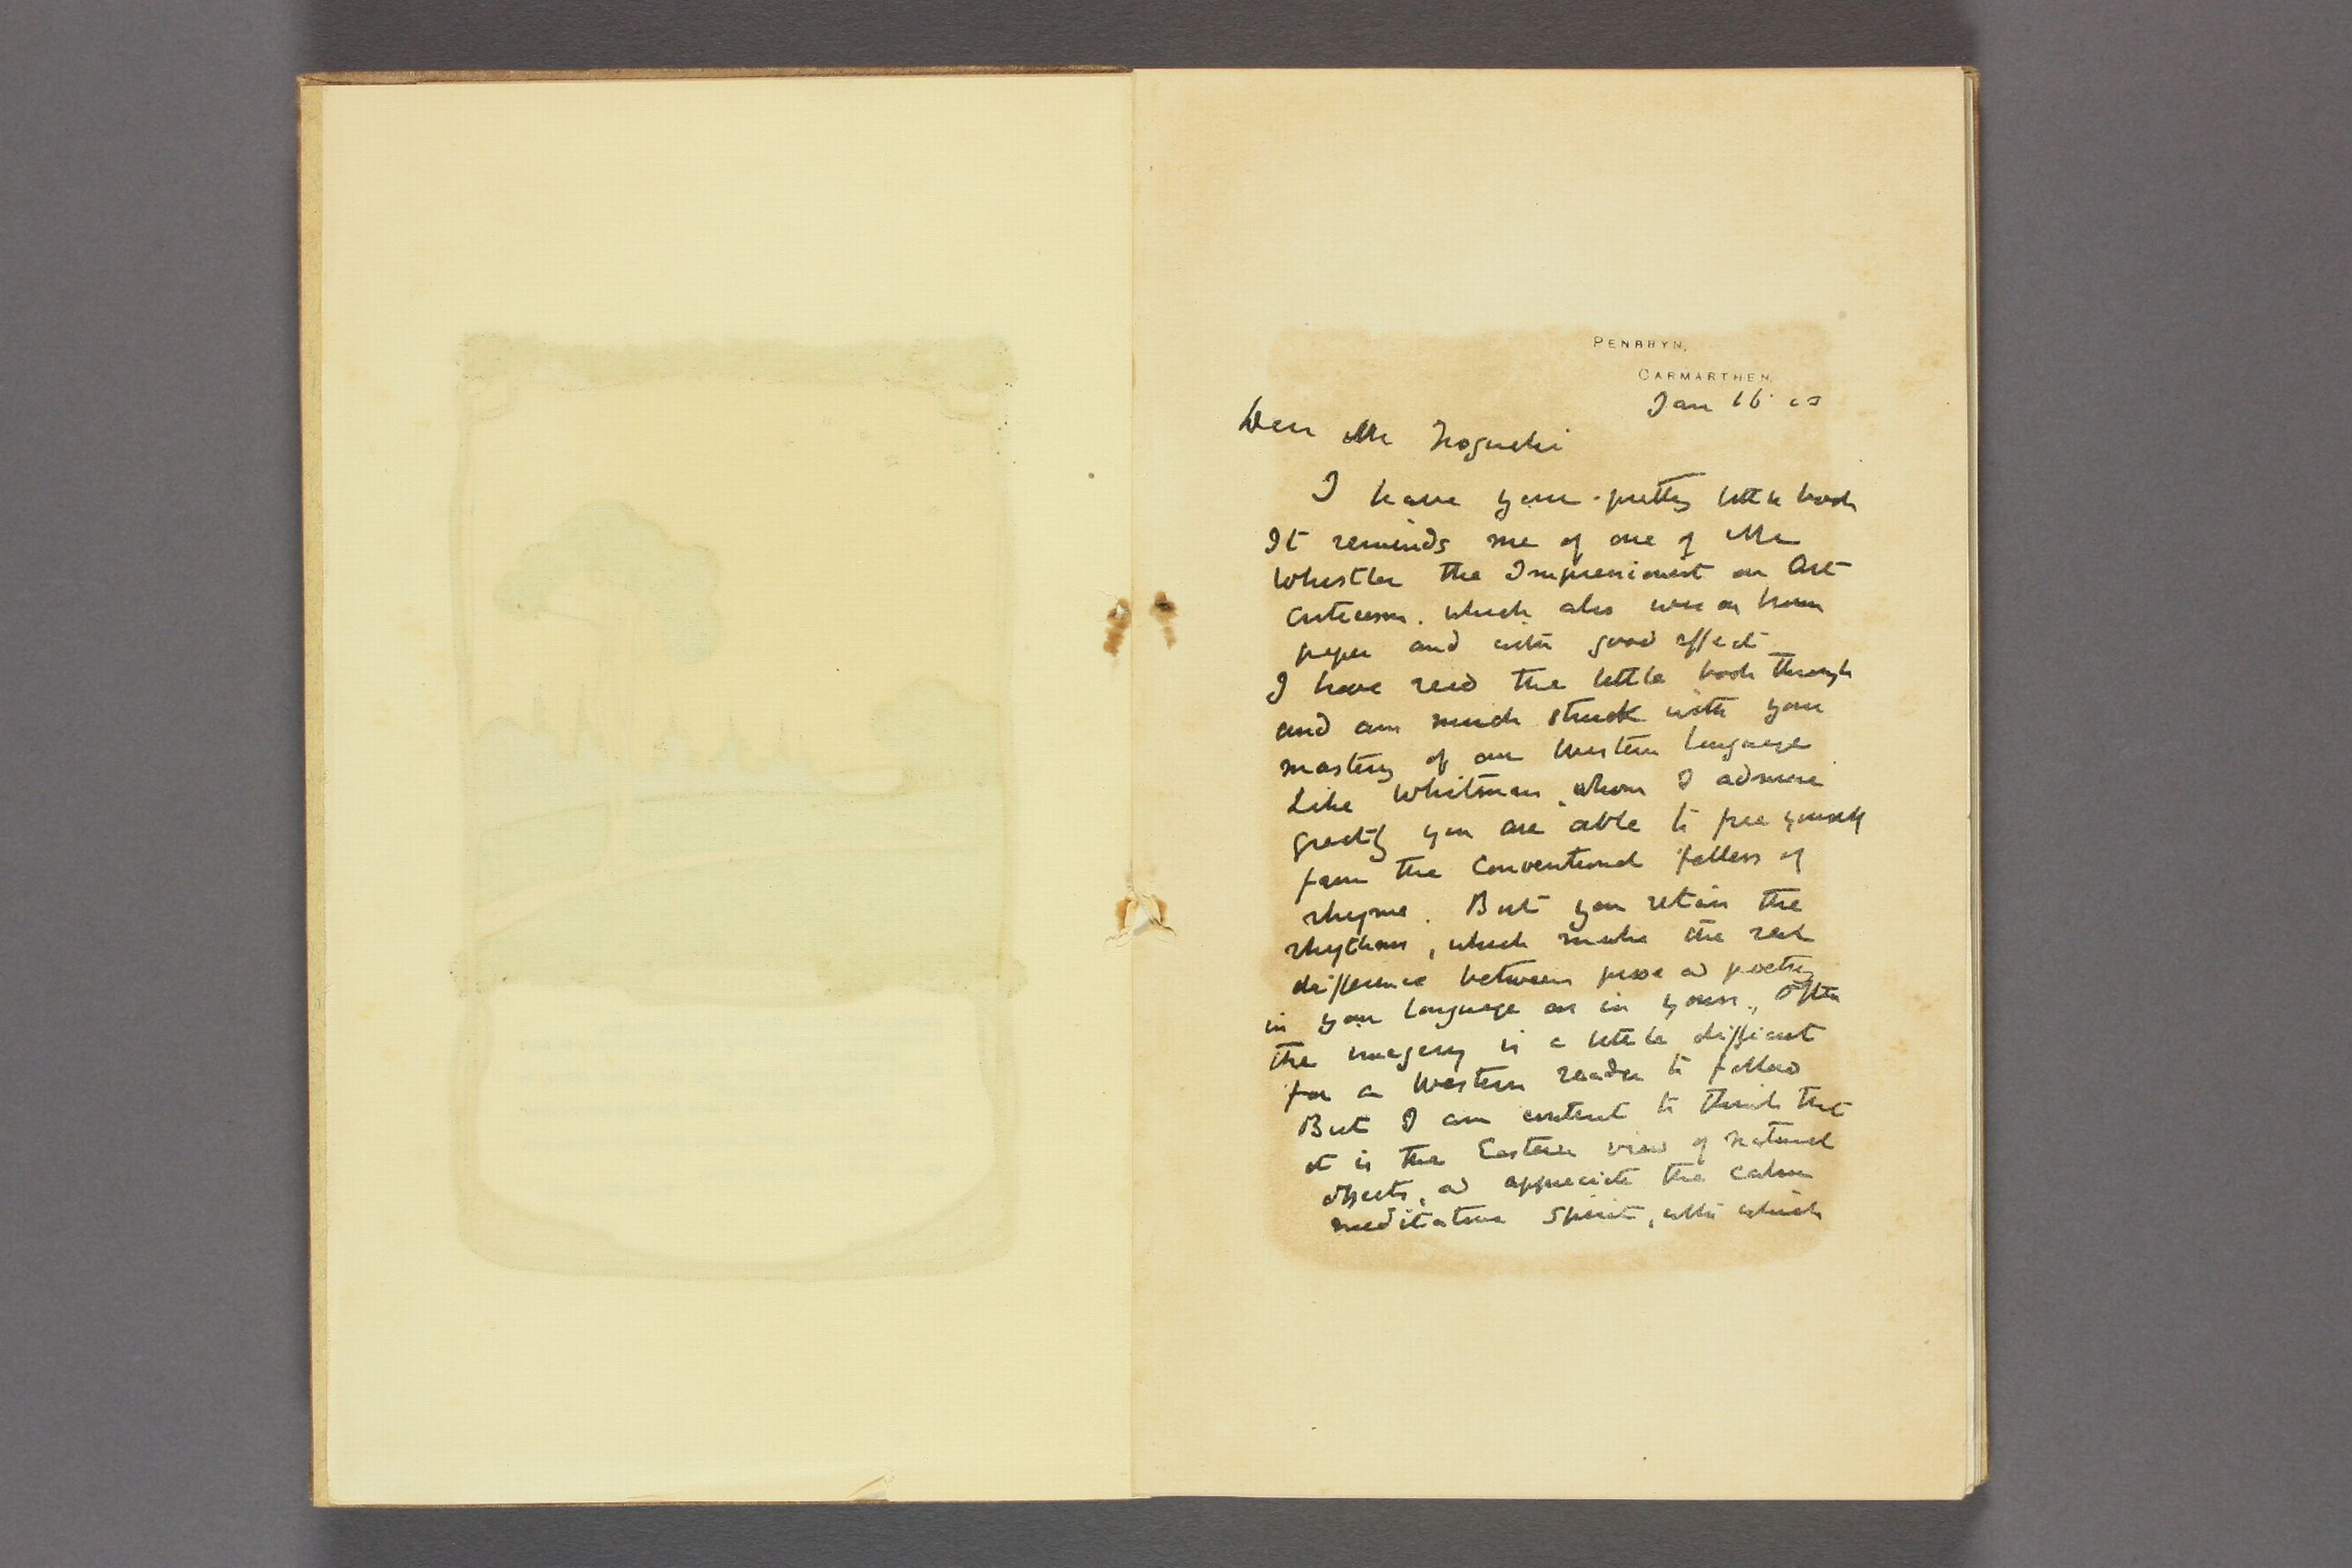 PENBRYN,
CARMARTHEN.
Jan 16 03
Dear Mr Noguchi
I have your pretty little book
It reminds me of one of Mr
Whistler the Impressionist on Art
Criticism. which also was on brown
paper and with good effect
I have read the little book through
and am much struck with your
mastery of our Western language
Like Whitman, whom I admire
greatly you are able to free yourself
from the conventional fetters of
rhyme. But you retain the
rhythm, which make the real
difference between prose and poetry
in your language as in yours., Often
the imagery is a little difficult
for a Western reader to follow
But I am content to think that
it is the Eastern view of natural
objects, and appreciate the calm
meditative spirit, with which